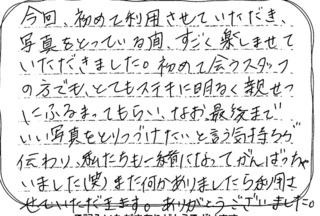 今回、初めて利用させていただき、
写真をとっている間、すごく楽しませて
いただきました。初めて会うスタッフ
の方でも、とてもステキに明るく親せつ
にふるまってもらい、なお、最後まで
いい写真をとりつづけたいと言う気持ちが
伝わり、私たちも一緒になってがんばっちゃ
いました(笑)また何かありましたら利用さ
せていただきます。ありがとうございました。